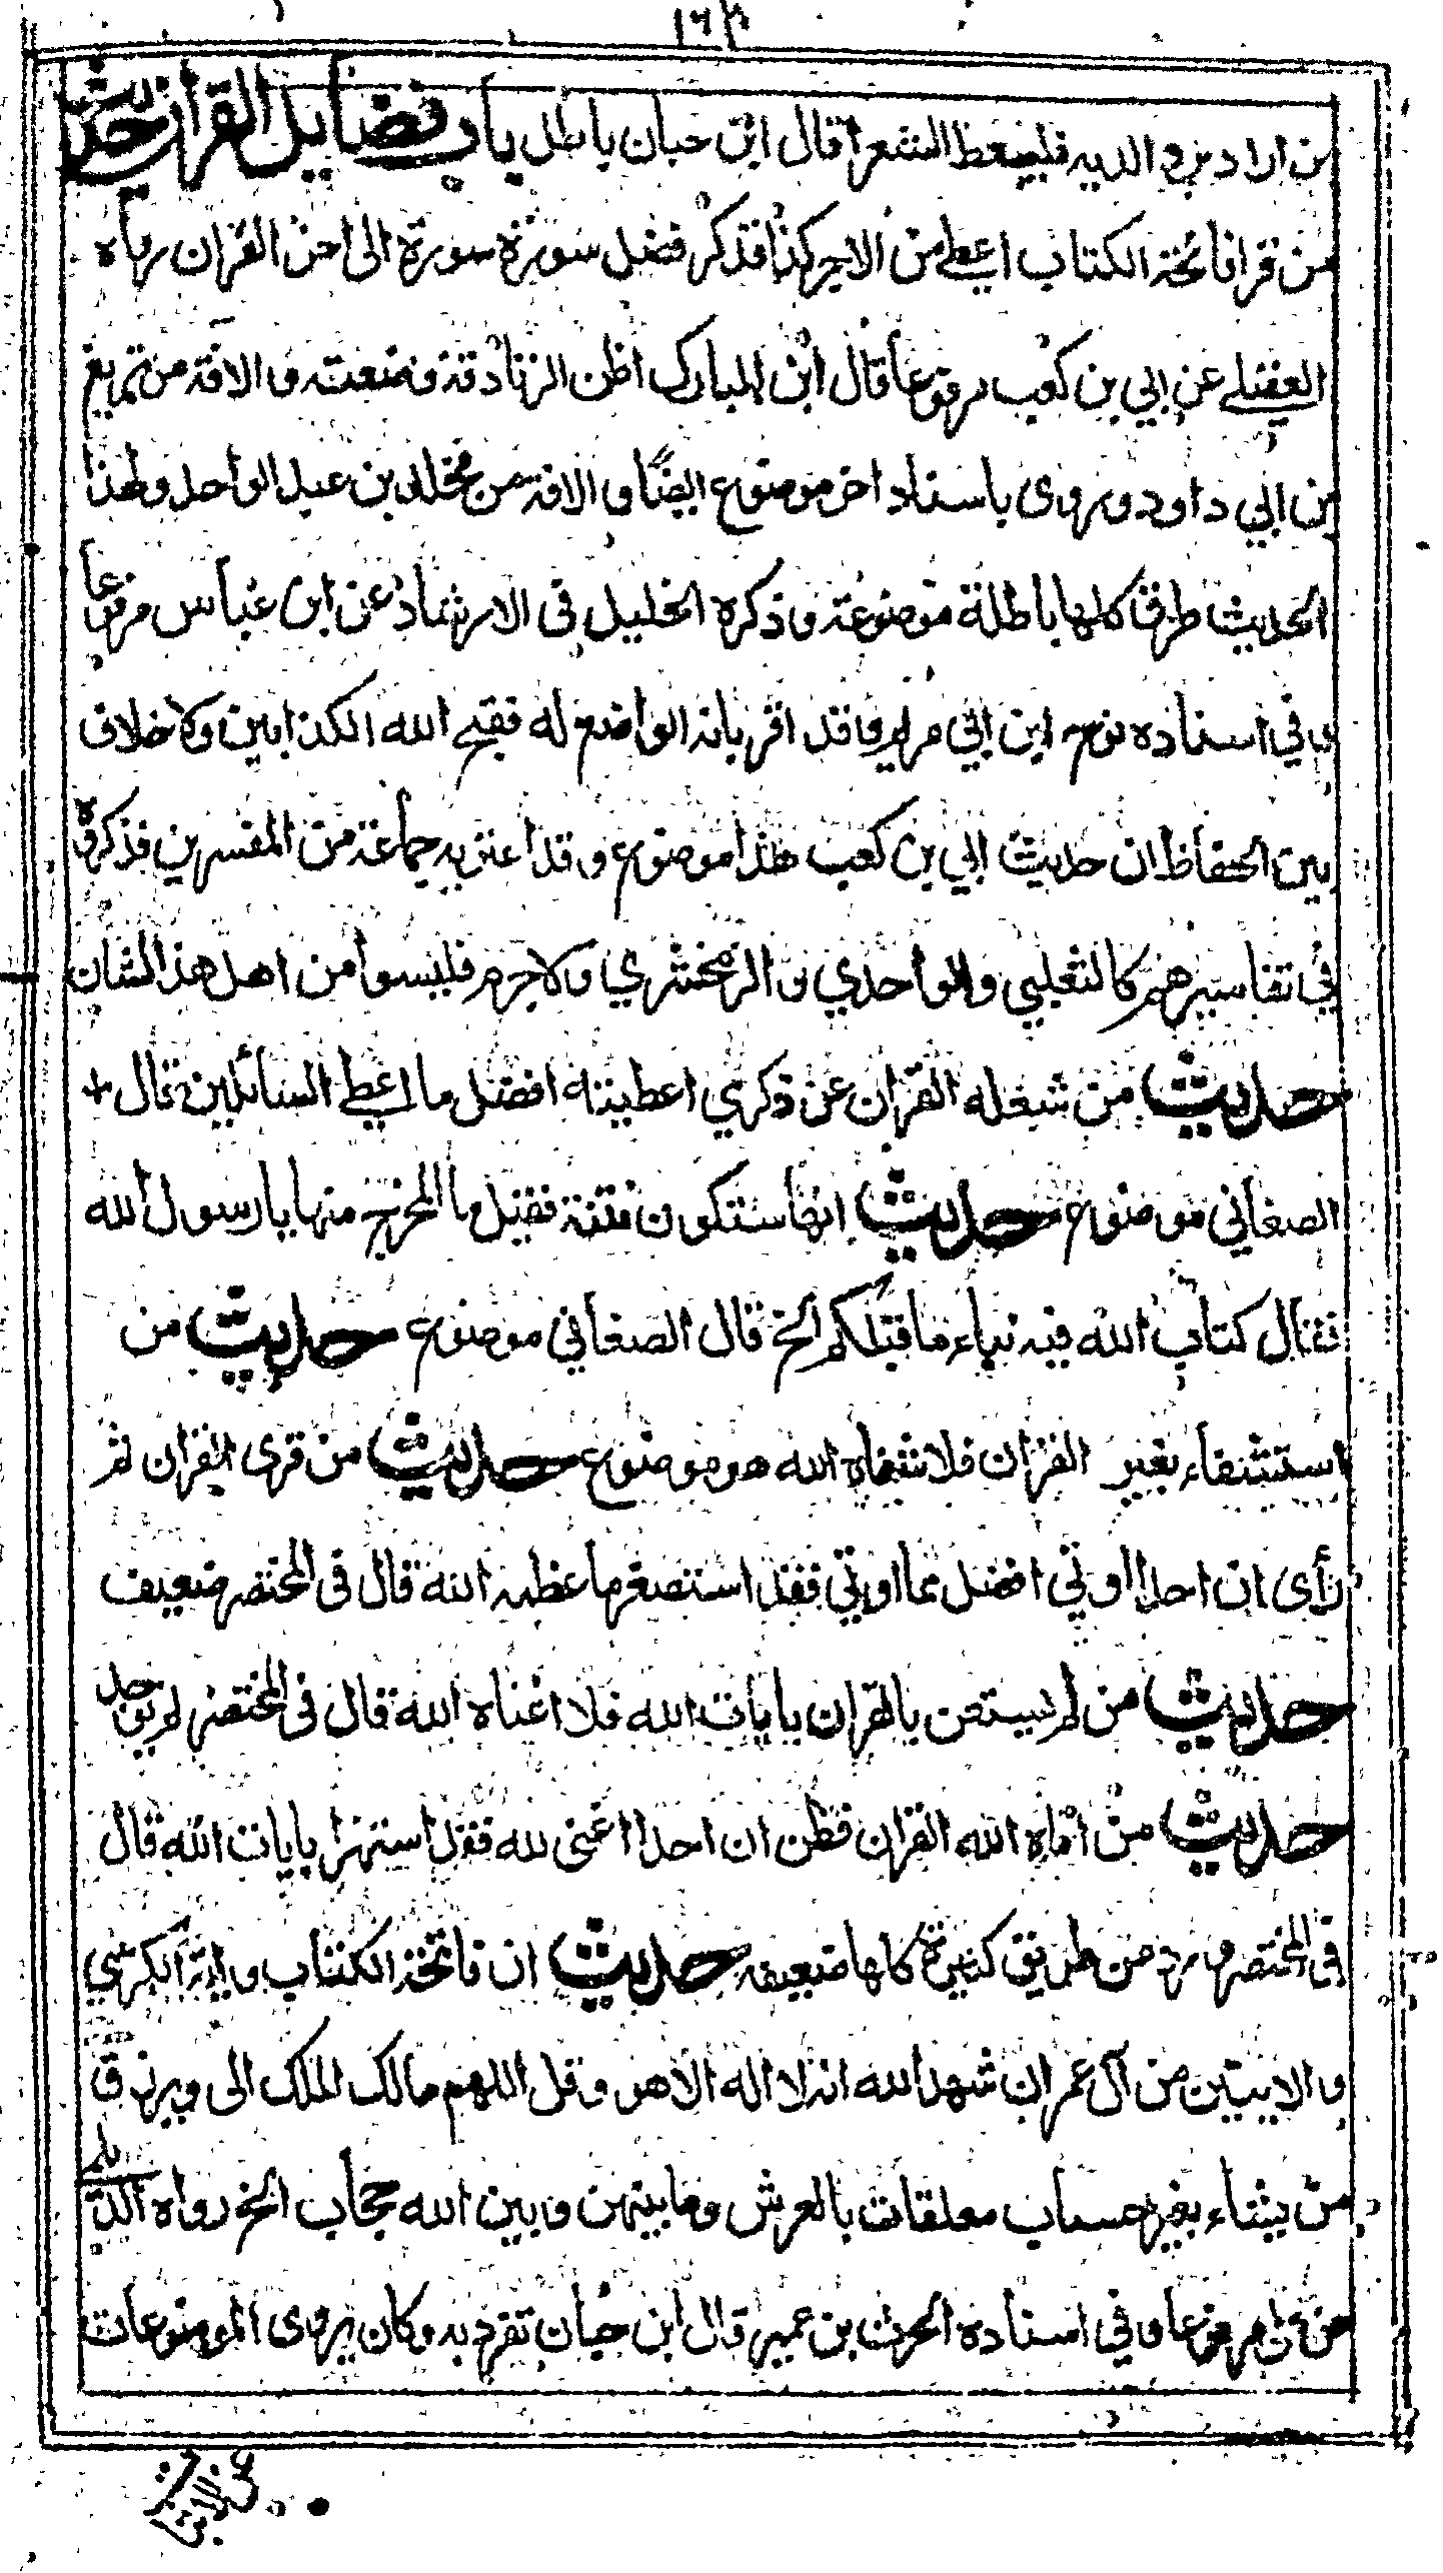 ١٦٣
من اراد بر والديه فليعط الشعراء قال ابن حبان باطل باب فضايل القرآن حديث
من قرا فاتحة الكتاب اعطى من الاجر كذا فذكر فضل سورة سورة الى اخر القران رواه
العقيلى عن ابي بن كعب مرفوعا قال ابن المبارك اظن الزنادقة وضعته والافة من بزيغ
بن ابي داود وروى باسناد اخر موضوع ايضا و الافة من مخلد بن عبد الواحد ولهذا
الحديث طرق كلها باطلة موضوعة وذكره الخليل فى الارشاد عن ابن عباس مرفوعا
وفي اسناده نوح ابن ابي مريم وقد اقر بانه الواضع له فقبح الله الكذابين ولا خلاف
بين الحفاظ ان حديث ابي بن كعب هذا موضوع وقد اغتر به جماعة من المفسرين فذكروه
في تفاسيرهم كالثعلبي والواحدي و الزمخشري ولا جرم فليسوا من اهل هذا الشان
حديث من شغله القران عن ذكري اعطيته افضل ما اعطى السائلين قال
الصغاني موضوع حديث انها ستكون فتنة فقيل ما المخرج منها يا رسول الله
فقال كتاب الله فيه نباء ما قبلكم الخ قال الصغاني موضوع حديث من
استشفاء بغير القران فلا شفاه الله هو موضوع حديث من قرى القران ثم
رأى ان احدا اوتي افضل مما اوتي فقد استصغر ما عظمه الله قال فى المختصر ضعيف
حديث من لم يستغن بالقران بايات الله فلا اغناه الله قال فى المختصر لم يوجد
حديث من اتاه الله القران فظن ان احدا اغنى لله فقد استهزا بايات الله قال
فى المختصر ورد من طريق كثيرة كلها ضعيفه حديث ان فاتحة الكتاب واية الكرسي
و الايتين من آل عمران شهد الله انه لا اله الا هو وقل اللهم مالك الملك الى ويرزق
من يشاء بغير حساب معلقات بالعرش وما بينهن وبين الله حجاب الخ رواه الديلمي
عن على مرفوعا وفي اسناده الحرث بن عمير قال ابن حبان تفرد به وكان يروى الموضوعات